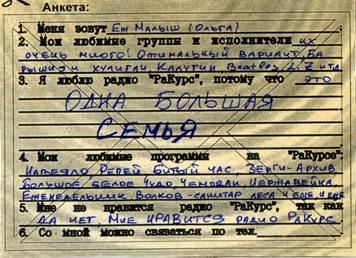 Анкета:
1. Меня зовут Ёж Малыш (Ольга)
2. Мои любимые группы и исполнители их
очень много! Оптимальный вариант, Ба
рышня и хулиган Калугин Beatles Л/Z итд
3. Я люблю радио "РаКурс", потому что это
ОДНА БОЛЬШАЯ
СЕМЬЯ
4. Мои любимые программы на "РаКурсе":
Навеяло, Репей Битый час, Зерги-Архив
Большое белое чудо, Чемодан, Нержавейка
Еженедельник Волков-санитар леса и
5. Мне не нравится радио "РаКурс", так как
ДА НЕТ, МНЕ НРАВИТСЯ РАДИО РАКУРС
6. Со мной можно связаться по тел.